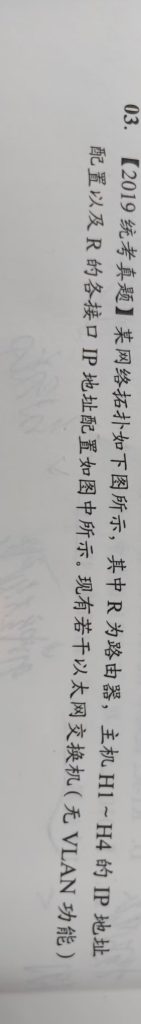 03. 【2019 统考真题】某网络拓扑如下图所示，其中 R 为路由器，主机 H1～H4 的 IP 地址
配置以及 R 的各接口 IP 地址配置如图中所示。现有若干以太网交换机（无 VLAN 功能）